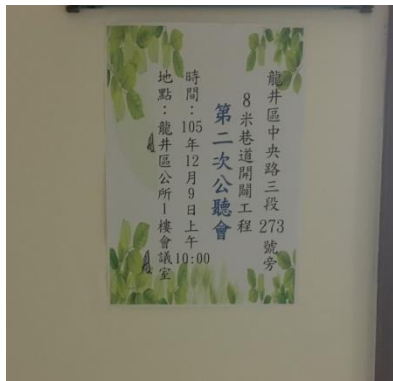 龍井區中央路三段273號旁
8米巷道開闢工程
第二次公聽會
時間：105年12月9日上午10:00
地點：龍井區公所1樓會議室